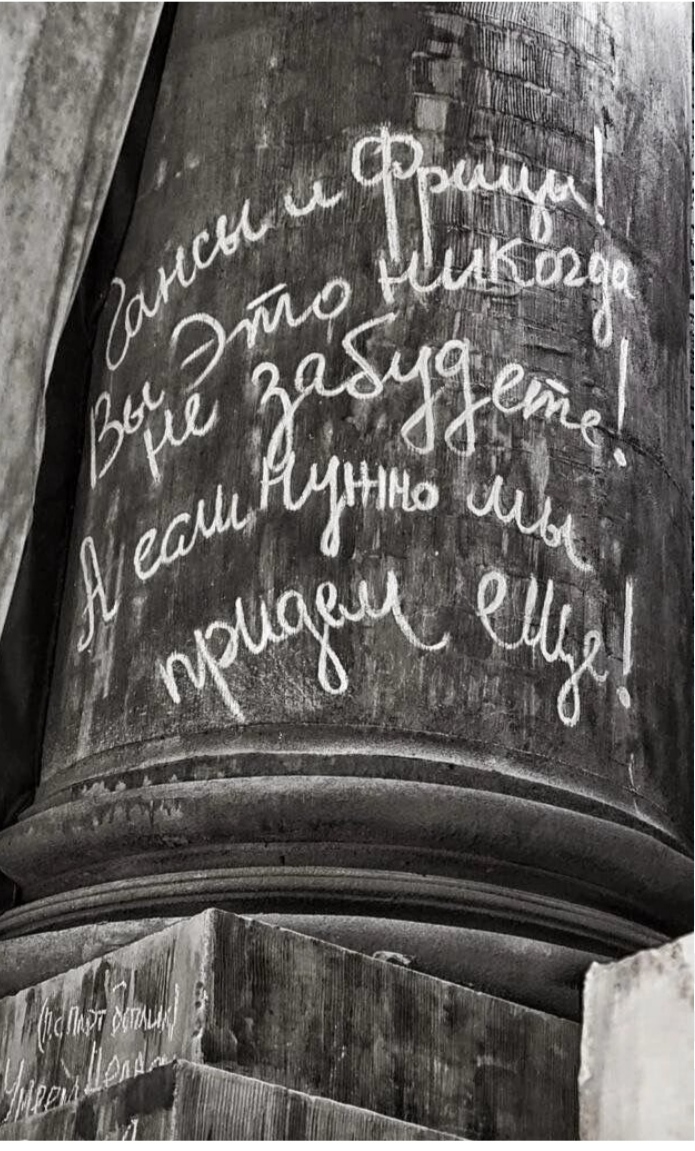 Гансы и Фрицы!
Вы Это никогда
не забудете!
А если Нужно мы
придем еще!